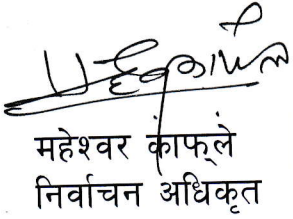 महेश्वर काफ्ले
निर्वाचन अधिकृत